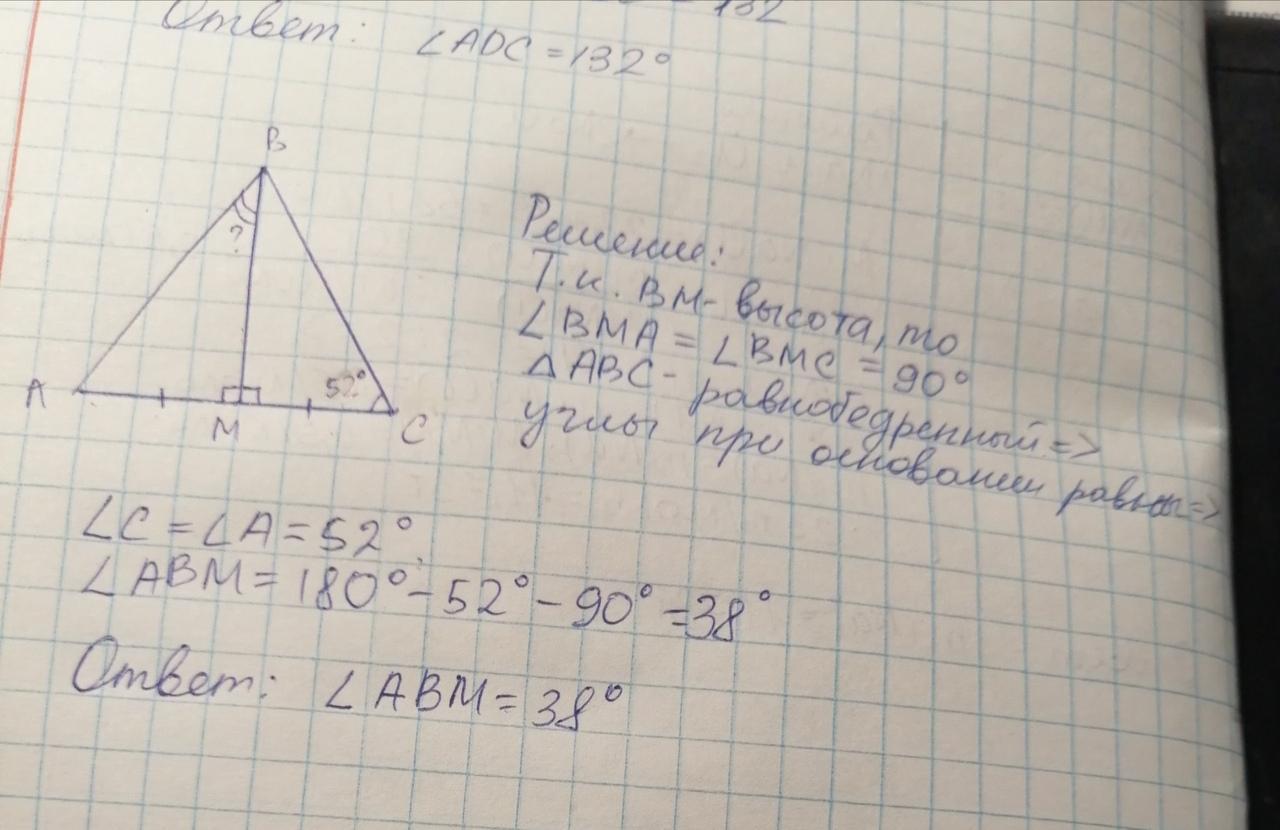 132
Ответ: ∠ADC = 132°
B
?
A
M
52°
C
Решение:
Т.к. BM - высота, то
∠BMA = ∠BMC = 90°
△ABC - равнобедренный =>
углы при основании равны =>
∠C = ∠A = 52°
∠ABM = 180° - 52° - 90° = 38°
Ответ: ∠ABM = 38°